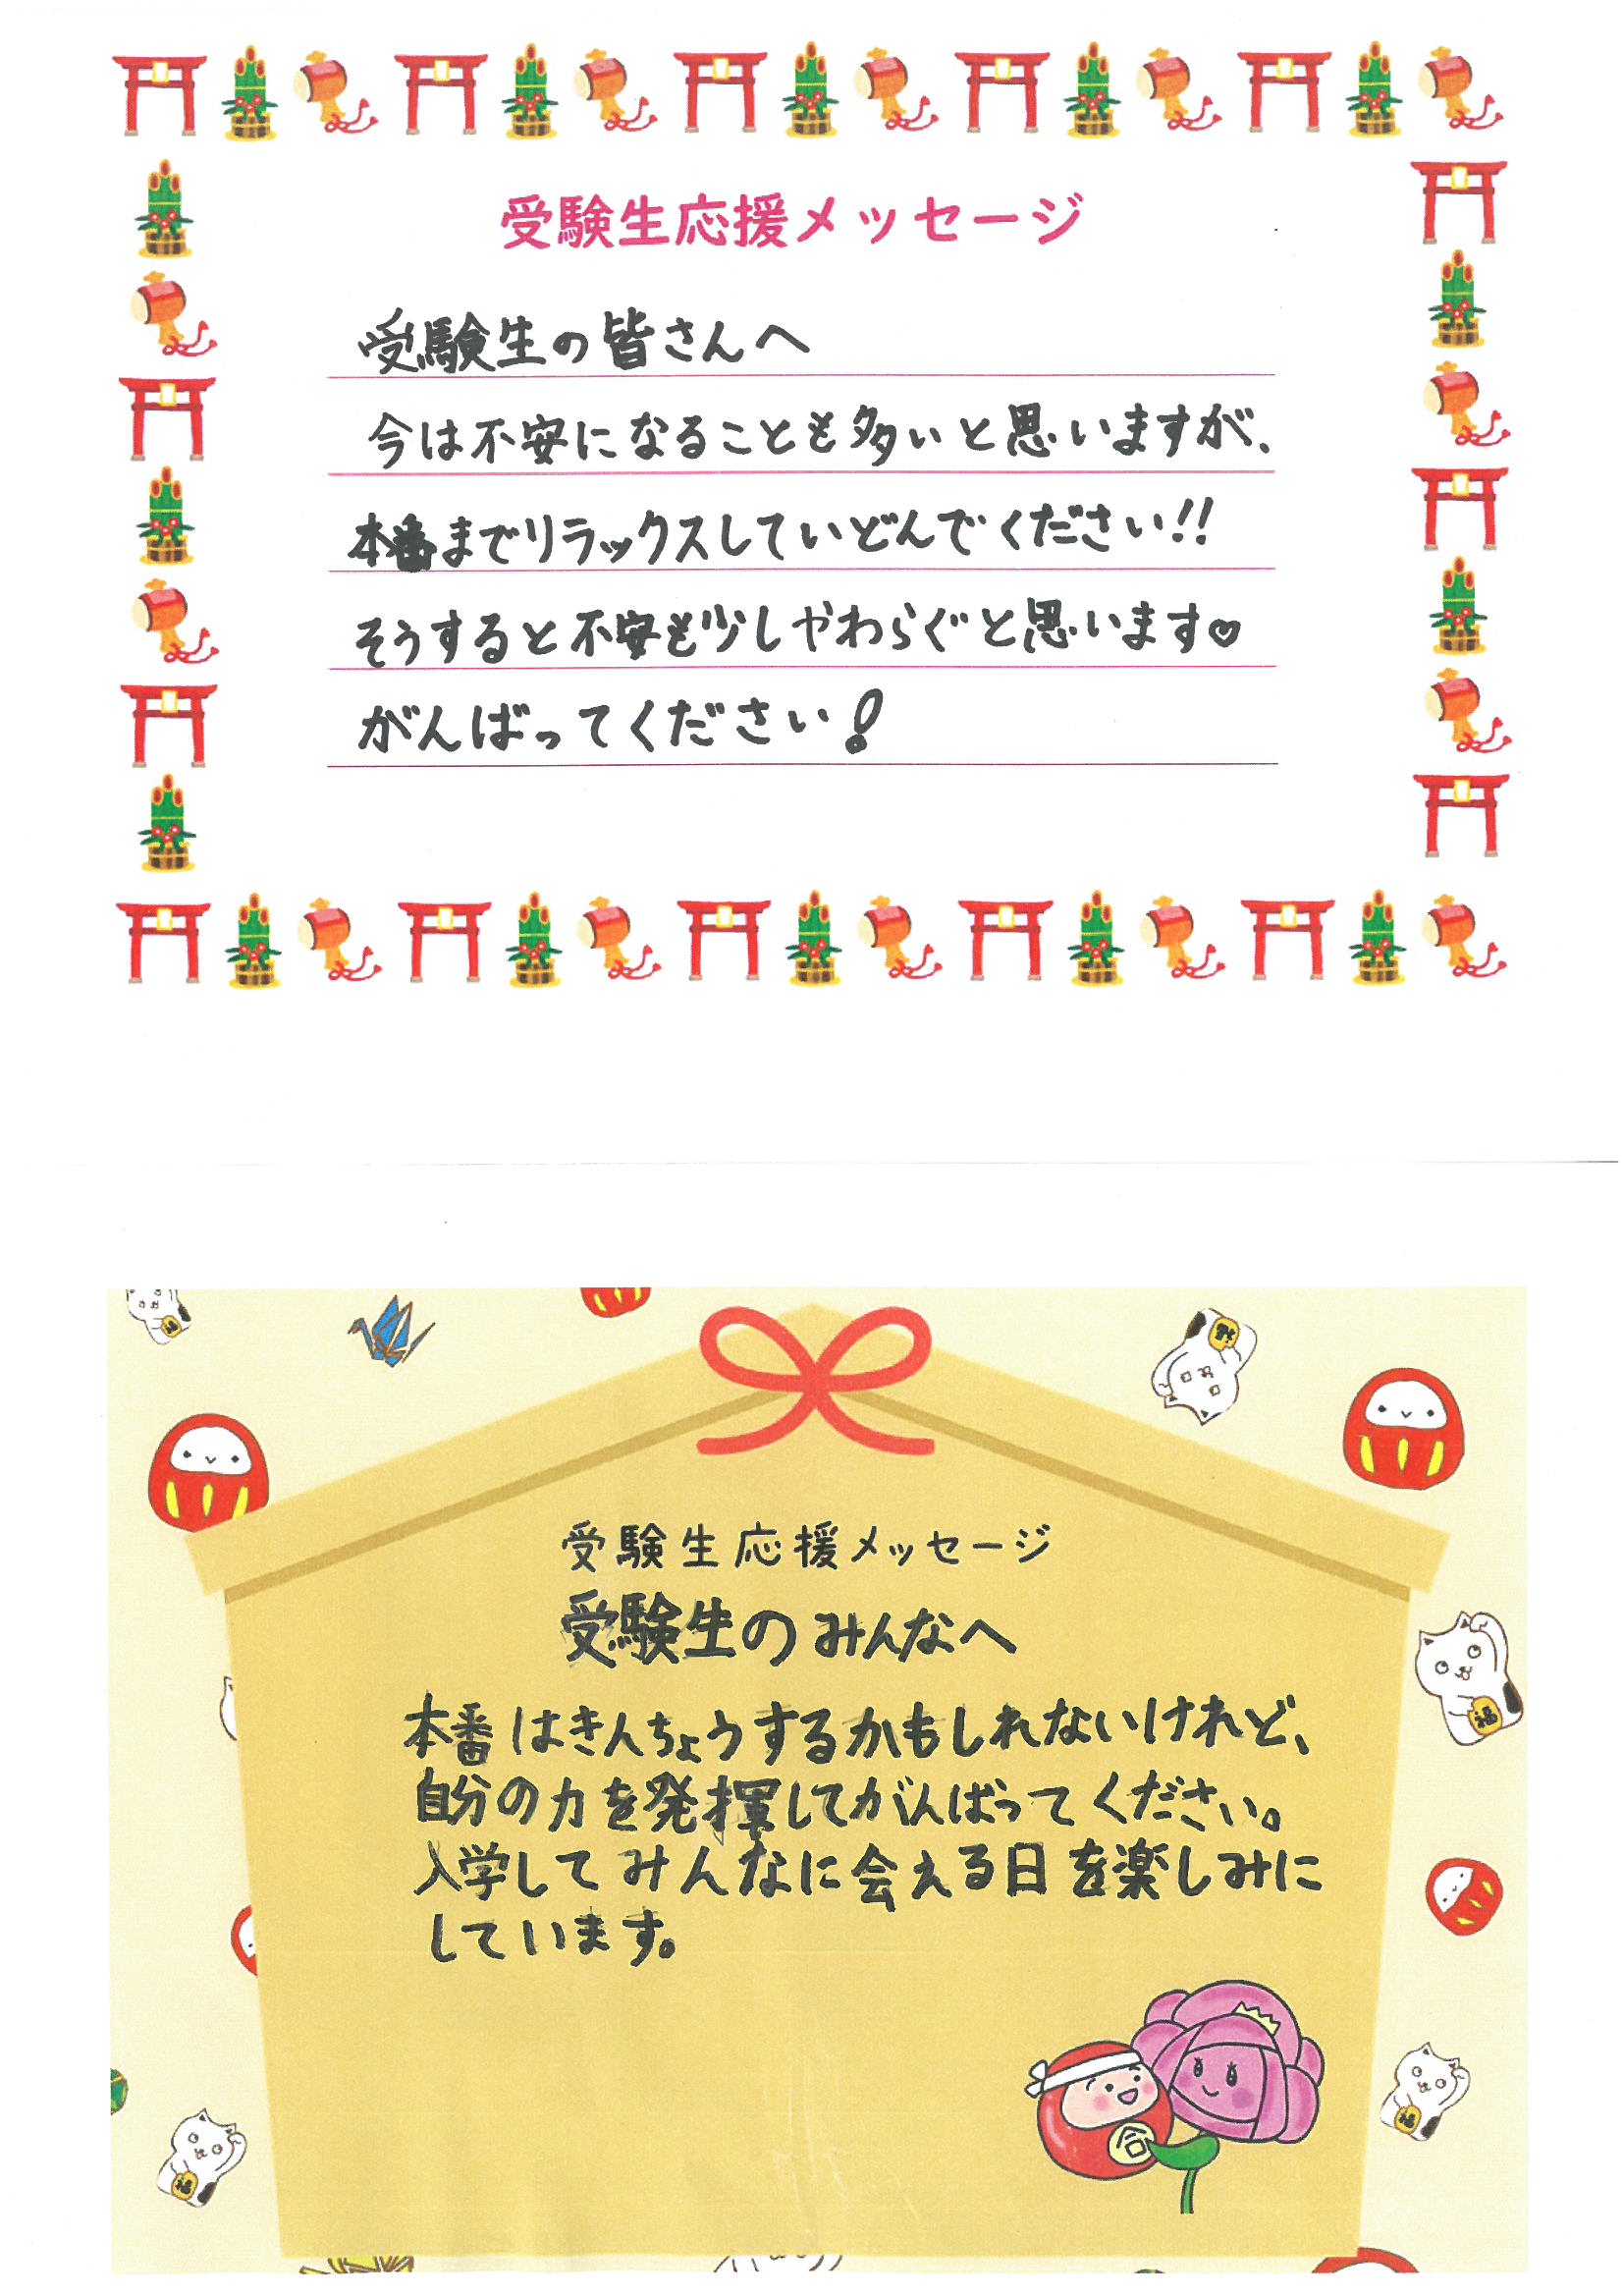 受験生応援メッセージ
受験生の皆さんへ
今は不安になることも多いと思いますが、
本番までリラックスしていどんでください!!
そうすると不安も少しやわらぐと思います♡
がんばってください!
受験生応援メッセージ
受験生のみんなへ
本番はきんちょうするかもしれないけれど、
自分の力を発揮してがんばってください。
入学してみんなに会える日を楽しみに
しています。
合
福
福
福
福